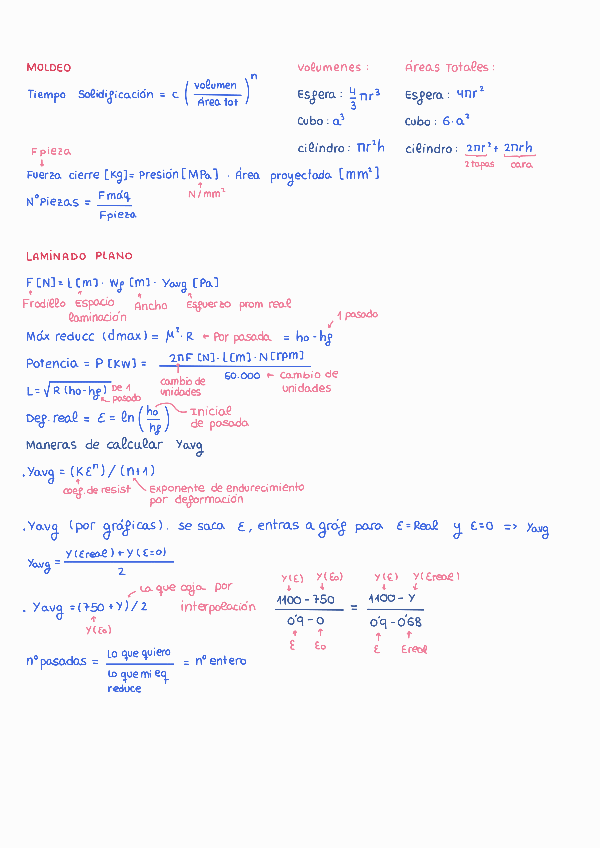 MOLDEO
Volumenes :
Áreas Totales :
Tiempo Solidificación = c (volumen / Área tot)^n
Esfera : 4/3 πr³
Esfera : 4πr²
Cubo : a³
Cubo : 6·a²
cilindro : πr²h
cilindro : 2πr² + 2πrh
2 tapas cara
F pieza
Fuerza cierre [Kg] = Presión [MPa] · Área proyectada [mm²]
N/mm²
Nº Piezas = Fmáq / Fpieza
LAMINADO PLANO
F [N] = L [m] · Wf [m] · Yavg [Pa]
Frodillo Espacio laminación Ancho Esfuerzo prom real
1 pasada
Máx reducc (dmax) = µ² · R ← Por pasada = ho - hf
Potencia = P [KW] = 2πF [N] · L [m] · N [rpm] / 60.000 ← cambio de unidades
cambio de unidades
L = √R (ho - hf) De 1 pasada
Def. real = ε = ln (ho / hf) Inicial de pasada
Maneras de calcular Yavg
. Yavg = (Kεⁿ) / (n+1)
coef. de resist exponente de endurecimiento
por deformación
. Yavg (por gráficas). se saca ε, entras a gráf para ε=Real y ε=0 => Yavg
Yavg = Y(εreal) + Y(ε=0) / 2
Lo que coja por interpolación
. Yavg = (750 + Y) / 2
Y(ε0)
Y(ε) Y(ε0) Y(ε) Y(εreal)
1100 - 750 / 0'9 - 0 = 1100 - Y / 0'9 - 0'68
ε ε0 ε εreal
nº pasadas = Lo que quiero / Lo que mi eq reduce = nº entero